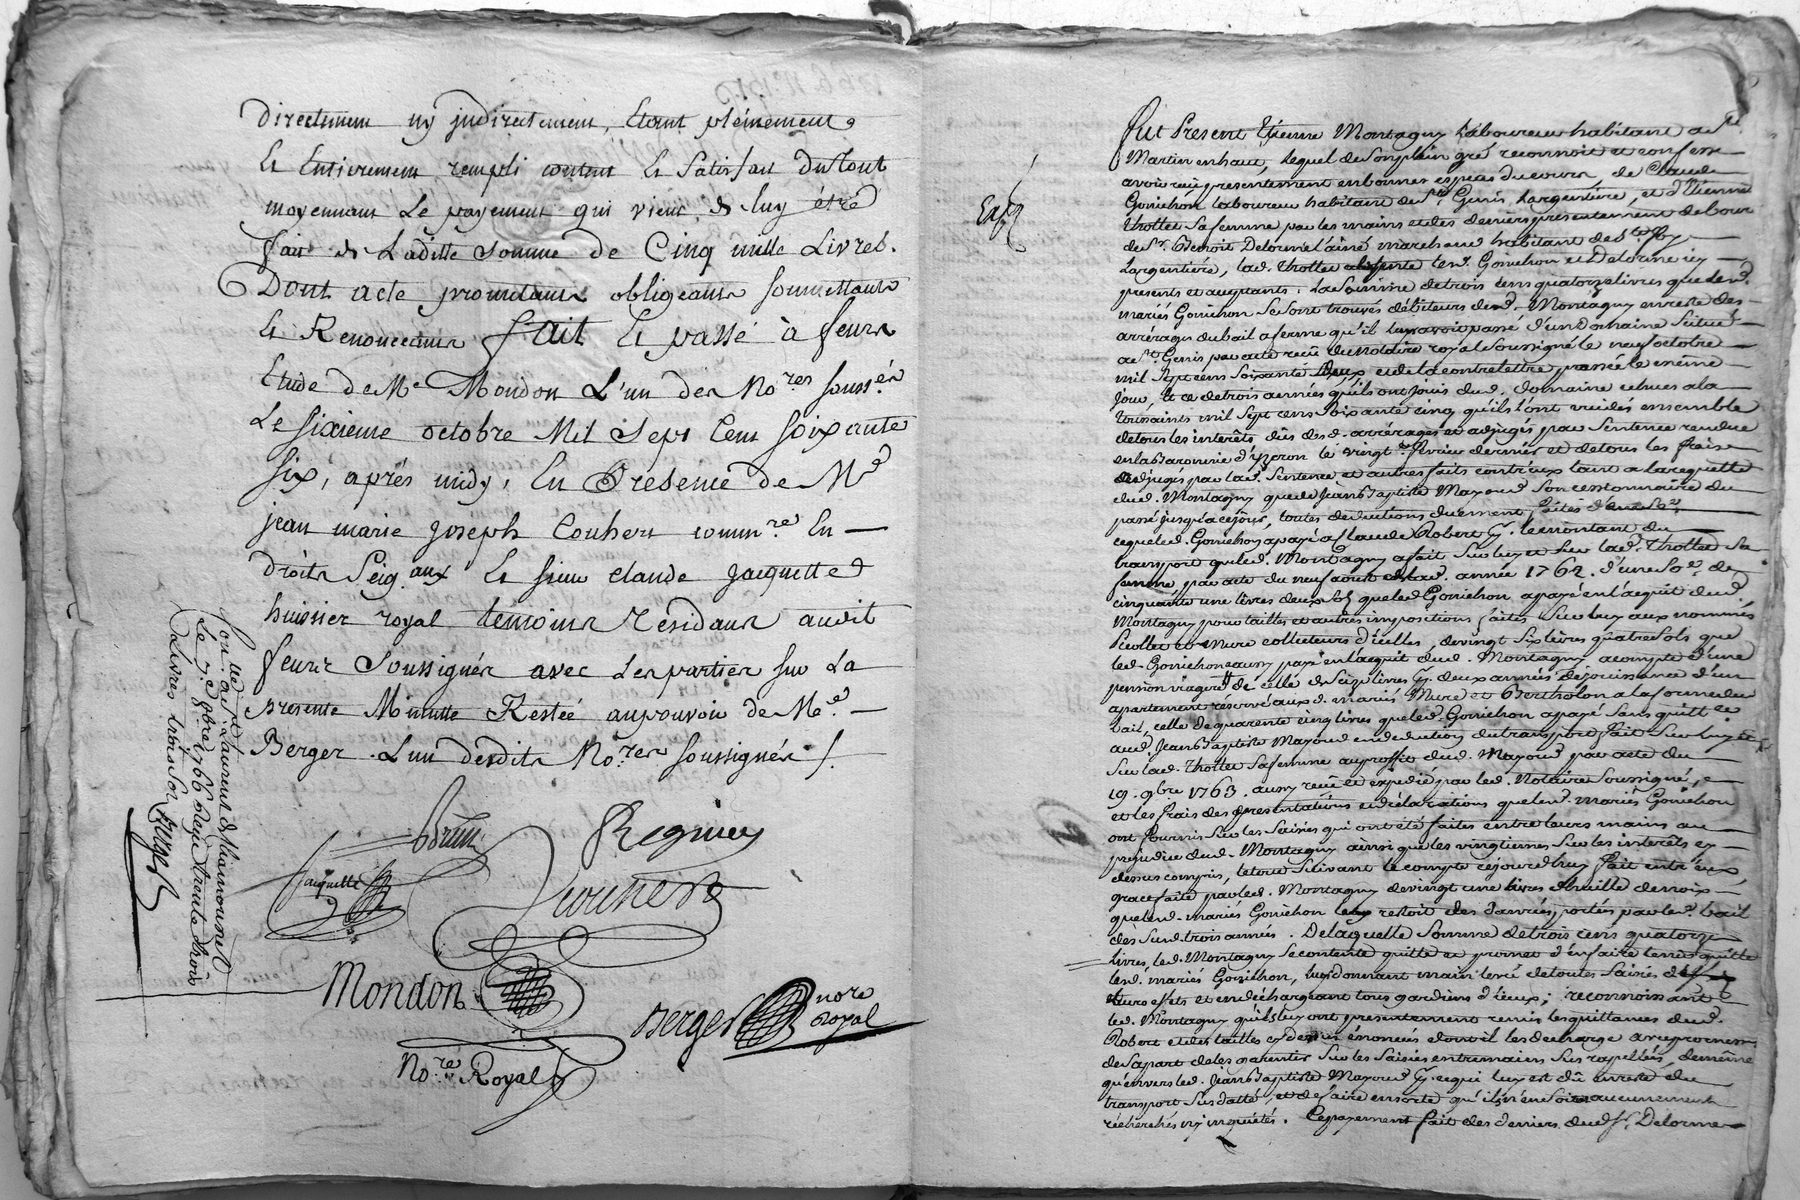 Directement ny jndirectement, Etant pleinement
Et Entierement rempli content Et Satisfait Du tout
moyennant Le payement qui vient de luy être
fait de Laditte somme de Cinq mille Livres.
Dont acte promettants obligeants soumettants
Et Renonceants fait Et passé à feurs
Etude de Me Mondon L'un des No.res souss.és
Le sixieme octobre Mil Sept Cent soixante
six, aprés midy, En Présence de Me
jean marie joseph Couhert comm.re En
droits Seig.aux Et sieur claude jacquette
huissier royal temoins résidants audit
feurs Soussignés avec Les parties sur La
Présente Minutte Restée au pouvoir de Me
Berger L'un desdits No.res soussignés /.
Brun
Regniey
jacquette
Couhert
Mondon
No.re Royal
Berger nore
royal
Con.lle à St Laurent de Chamousset
Le 7e 8bre 1766 Reçu trente trois
Livres trois sols
Exp.
Fut Present Etienne Montagny Laboureur habitant a St.
Martin en haut, lequel de son plein gré reconnoit et confesse
avoir reçu presentement en bonnes especes du cours, de Claude
Gonichon laboureur habitant de St. Genis Largentiere, et d'Etiennette
thollet sa femme par les mains et des deniers presentement debourcés
de Sr. Benoit Delorme l'ainé marchand habitant de Ste foy
Largentiére, lad. thollet absente led. Gonichon et Delorme icy
presents et acceptants: la somme de trois cens quatorze livres que les d.
mariés Gonichon se sont trouvés débiteurs dud. Montagny en reste des
arrérages du bail a ferme qu'il leur avoit passé d'un Domaine Scitué
a St. Genis par acte reçu du notaire royal Soussigné le neuf octobre
mil Sept cens Soixante Deux, et de la contrelettre passée le même
jour, Et ce de trois années qu'ils ont jouis dud. Domaine echues a la
toussaints mil Sept cens soixante cinq qu'ils l'ont vuidés ensemble
de tous les interêts dûs des d. arrérages et adjugés par Sentence rendue
en la Baronnie d'yzeron le vingt fevrier dernier et de tous les frais
adjugés par lad. Sentence et autres faits contr'eux tant a la requette
dud. Montagny que de Jean Baptiste Mayoud son cessionnaire du
passé jusqu'a ce jour, toutes deductions duement faites d'une Soe.
ce que led. Gonichon a payé a Claude Robert le montant du
transport que led. Montagny a fait Sur luy et Sur lad. thollet Sa
femme par acte du neuf aoust de lad. année 1762. d'une Soe. de
cinquante une livres deux Sols que led Gonichon a payé en l'acquit dud.
Montagny pour tailles et autres impositions faites Sur luy aux nommés
Piollet et Mure collecteurs d'icelles, de vingt Six livres quatre sols que
led. Gonichon a aussy payé en l'acquit dud. Montagny a compte d'une
pension viagere, de celle de Seize livres deux années de jouissance d'un
apartement reservé aux d. mariés Mure et Bertholon a la forme du
bail, celle de quarante cinq livres que led. Gonichon a payé Sans quitt.ce
aud. Jean Baptiste Mayoud en deduction du transport fait Sur luy et
Sur lad. thollet Sa femme au proffit dud. Mayoud par acte du
19. 9bre 1763. aussy reçu et expedié par led. Notaire Soussigné,
et les frais des presentations et déclarations que les d. mariés Gonichon
ont fournis Sur les Saisies qui ont été faites entre leurs mains au
prejudice dud. Montagny ainsi que les vingtiemes Sur les interêts cy
dessus compris, le tout Suivant le compte cejourd'huy fait entr'eux,
grace faite par led. Montagny de vingt une livres d'huille de noix
que les d. mariés Gonichon luy restoit des danrées portées par led. bail
dès Sus d. trois années. De laquelle Somme de trois cens quatorze
livres, led. Montagny Se contente quitte et promet d'en faire tenir quitte
les d. mariés Gonichon, leur donnant main levée de toutes Saisies
leurs effets et en déchargeant tous gardiens d'iceux; reconnoissant
led. Montagny qu'ils luy ont presentement remis les quittances dud.
Robert et des tailles cy dessus énoncées dont il les decharge avec promesse
de Sa part de les garentir Sur les Saisies entremains Sus rapellées, de même
qu'envers led. Jean Baptiste Mayoud ce qui luy est dû en reste du
transport Sus datté, et de faire en sorte qu'ils n'en soient aucunement
réchérchés ny inquiétés. Le payement fait des deniers dud. Sr. Delorme